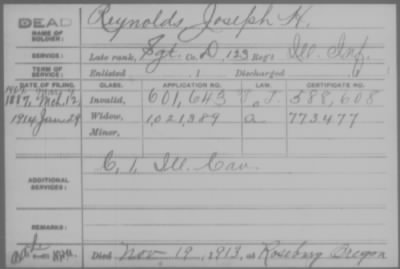 DEAD
NAME OF SOLDIER: Reynolds, Joseph H.
SERVICE: Late rank, Sgt. Co. D, 123 Reg't Ill. Inf.
TERM OF SERVICE: Enlisted , 1 Discharged , 1
DATE OF FILING. CLASS. APPLICATION NO. LAW. CERTIFICATE NO.
1887, Mch. 12, Invalid, 601,643 588,608
1914 Jan 29 Widow, 1,021,389 a 773477
Minor,
ADDITIONAL SERVICES: C, 1, Ill. Cav.
REMARKS:
Died Nov. 19, 1913, at Roseburg Oregon